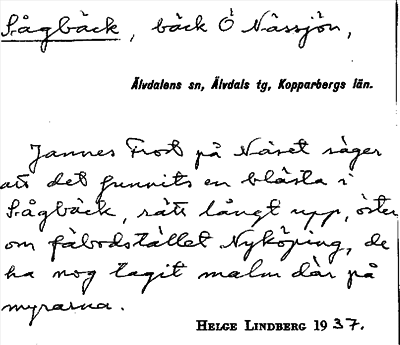 Sågbäck, bäck Ö Nässjön,
Älvdalens sn, Älvdals tg, Kopparbergs län.
Jannes Frost på Näset säger
att det funnits en blästa i
Sågbäck, rätt långt upp, öster
om fäbodstället Nyköping, de
ha nog tagit malm där på
myrarna.
HELGE LINDBERG 1937.